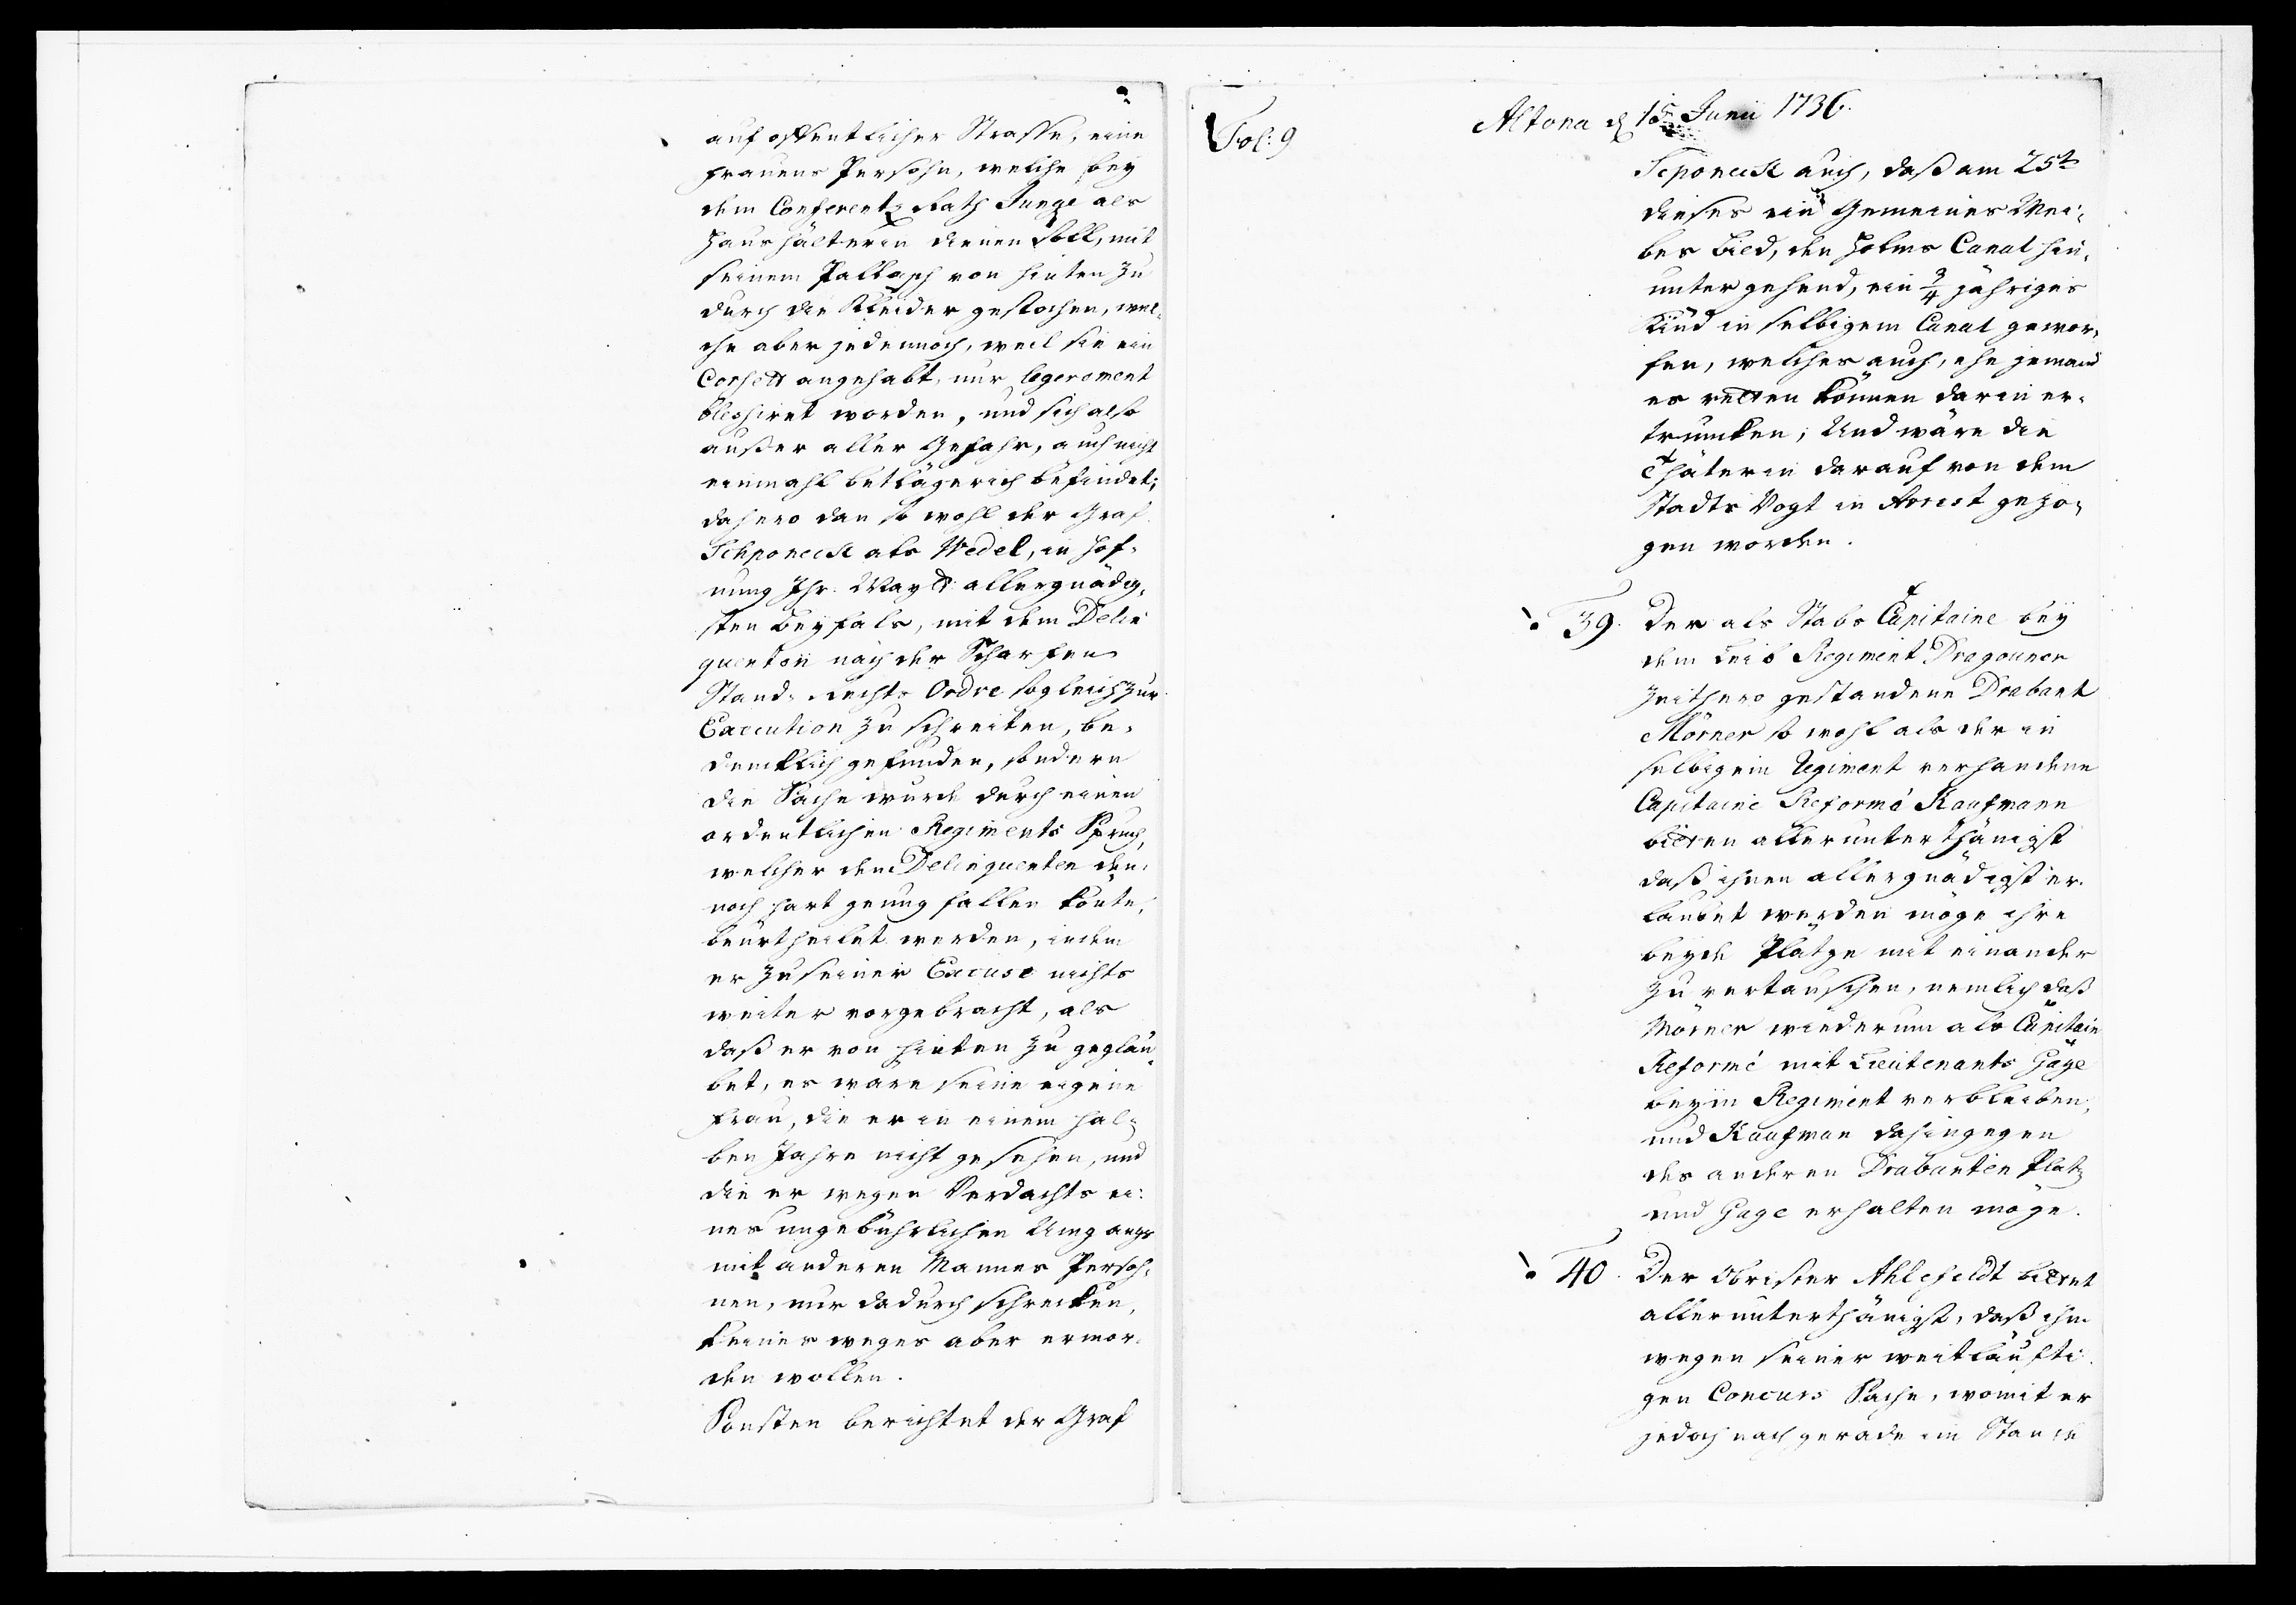 auf offentlicher Strasse, eine
Frauens Persohn, welche bey
dem Conferentz Rath Junge als
Haushälterin dienen soll, mit
seinem Pallasch von hinten zu
durch die Kleider gestochen, wel-
che aber jedennoch, weil sie ein
Corsett angehabt, nur legerement
blessiret worden, und sich also
außer aller Gefahr, auch nicht
einmahl betlägerich befindet;
dahero dan so wohl der Graf
Schponeck als Wedel, in Hof-
nung Ihr. Mayt. allergnädig-
sten Beyfals, mit dem Delin-
quenten nach der Scharfen
Stand-Rechts Ordre sogleich zur
Execution zu schreiten, be-
dencklich gefunden, sondern
die Sache wurde durch einen
ordentlichen Regiments Spruch,
welcher dem Delinquenten den-
noch hart genug fallen könte,
beurtheilet werden, indem
er zu seiner Excuse nichts
weiter vorgebracht, als
daß er von hinten zu geglau-
bet, es wäre seine eigene
Frau, die er in einem hal-
ben Jahre nicht gesehen, und
die er wegen Verdachts ei-
nes ungebührlichen Umgangs
mit anderen Mannes Persoh-
nen, nur dadurch schrecken,
keines weges aber ermor-
den wollen.
Sonsten berichtet der Graf
Fol: 9
Altona d 15 Junii 1736.
Sponeck auch, daß am 25t
dieses ein Gemeines Wei-
bes Bild, den Holms Canal hin-
unter gehend, ein 3/4 jähriges
Kind in selbigem Canal gewor-
fen, welches auch, ehe jemand
es retten können darin er-
truncken; Und wäre die
Thäterin darauf von dem
Stadts Vogt in Arrest gezo-
gen worden.
39. Der als Stabs Capitaine bey
dem Leib Regiment Dragouner
zeithero gestandene Drabant
Mörner so wohl als der in
selbigem Regiment verhandene
Capitaine Reformé Kaufmann
bitten allerunterthänigst
daß ihnen allergnädigst er-
laubet werden möge ihre
beyde Plätze mit einander
zu vertauschen, nemlich daß
Mörner wiederum als Capitain
Reformé mit Lieutenants Gage
beym Regiment verbleiben,
und Kaufman dahingegen
des anderen Drabanten Platz
und Gage erhalten möge.
40. Der Obrister Ahlefeldt bittet
allerunterthänigst, daß ihm
wegen seiner weitläufti-
gen Concurs Sache, womit er
jedoch nachgerade im Stande